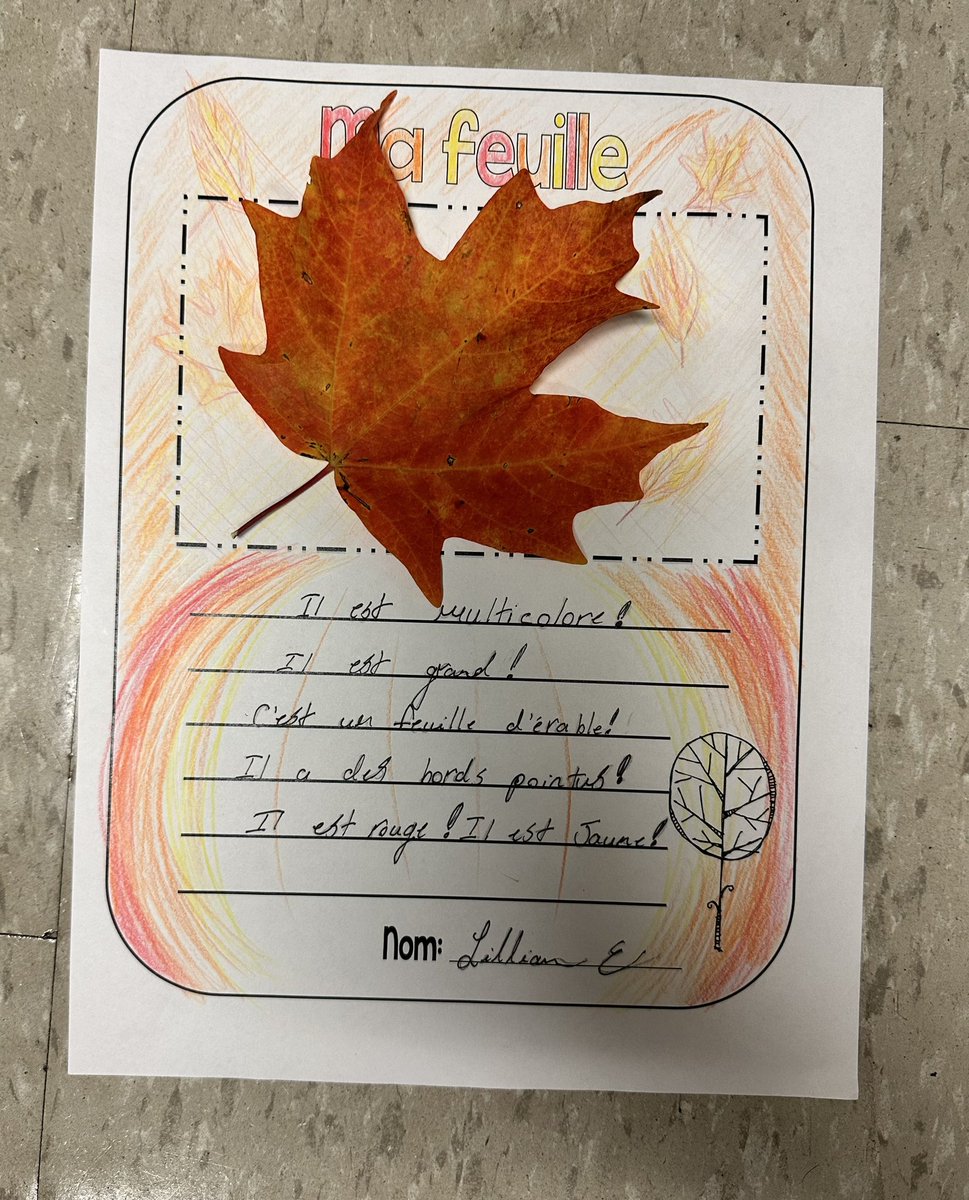 ma feuille
Il est multicolore!
Il est grand!
C'est un feuille d'érable!
Il a des bords pointus!
Il est rouge! Il est Jaune!
Nom: Lillian E